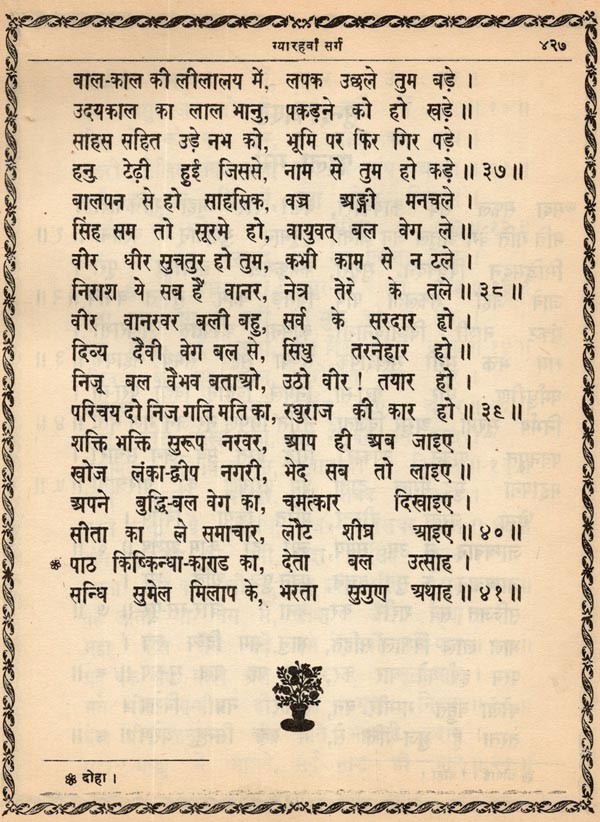 ग्यारहवाँ सर्ग ४२७
बाल-काल की लीलालय में, लपक उछले तुम बड़े ।
उदयकाल का लाल भानु, पकड़ने को हो खड़े ॥
साहस सहित उड़े नभ को, भूमि पर फिर गिर पड़े ।
हनु टेढ़ी हुई जिससे, नाम के तुम हो कड़े ॥ ३७ ॥
बालपन से हो साहसिक, वज्र अङ्गी मनचले ।
सिंह सम तो सूरमे हो, वायुवत् बल वेग ले ॥
वीर धीर सुचतुर हो तुम, कभी काम से न टले ।
निराश ये सब हैं वानर, नेत्र तेरे के तले ॥ ३८ ॥
वीर वानरवर बली बहु, सर्व के सरदार हो ।
दिव्य दैवी वेग बल से, सिंधु तरनेहार हो ॥
निज बल वैभव बताओ, उठो वीर ! तयार हो ।
परिचय दो निज गति मति का, रघुराज की कार हो ॥ ३९ ॥
शक्ति भक्ति सुरूप नरवर, आप ही अब जाइए ।
खोज लंका-द्वीप नगरी, भेद सब तो लाइए ॥
अपने बुद्धि-बल वेग का, चमत्कार दिखाइए ।
सीता का ले समाचार, लौट शीघ्र आइए ॥ ४० ॥
❀ पाठ किष्किन्धा-काण्ड का, देता बल उत्साह ।
सन्धि सुमेल मिलाप के, भरता सुगुण अथाह ॥ ४१ ॥
❀ दोहा ।